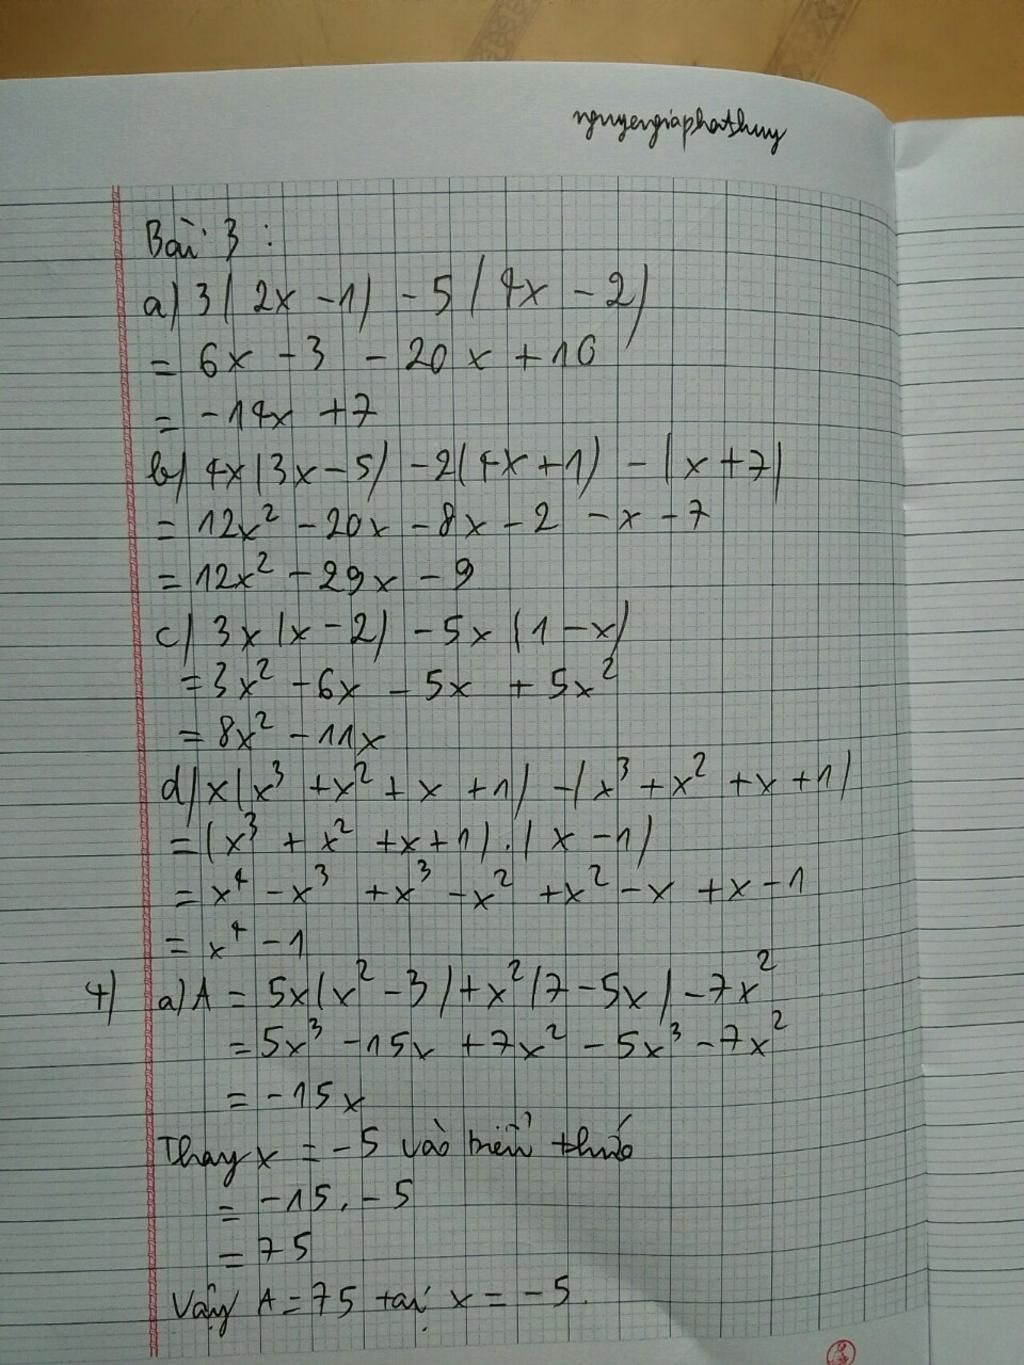 nguyengiaphathuy
Bài 3 :
a) 3(2x - 1) - 5(4x - 2)
= 6x - 3 - 20x + 10
= -14x + 7
b) 4x(3x - 5) - 2(4x + 1) - (x + 7)
= 12x² - 20x - 8x - 2 - x - 7
= 12x² - 29x - 9
c) 3x(x - 2) - 5x(1 - x)
= 3x² - 6x - 5x + 5x²
= 8x² - 11x
d) x(x³ + x² + x + 1) - (x³ + x² + x + 1)
= (x³ + x² + x + 1) . (x - 1)
= x⁴ - x³ + x³ - x² + x² - x + x - 1
= x⁴ - 1
4) a) A = 5x(x² - 3) + x²(7 - 5x) - 7x²
= 5x³ - 15x + 7x² - 5x³ - 7x²
= -15x
Thay x = -5 vào biểu thức
= -15 . -5
= 75
Vậy A = 75 tại x = -5.